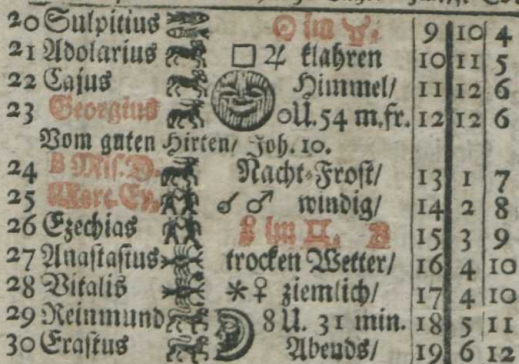 20 Sulpitius ☉ im ♈. 9 10 4
21 Adolarius □ ♃ klahren 10 11 5
22 Cajus Himmel/ 11 12 6
23 Georgius 0 U. 54 m. fr. 12 12 6
Vom guten Hirten/ Joh. 10.
24 B Mis. D. Nacht-Frost/ 13 1 7
25 Marc. Ev. ☌ ♂ windig/ 14 2 8
26 Ezechias im ♊. 15 3 9
27 Anastasius trocken Wetter/ 16 4 10
28 Vitalis ⚹ ♀ ziemlich/ 17 4 10
29 Reinmund 8 U. 31 min. 18 5 11
30 Erastus Abends/ 19 6 12